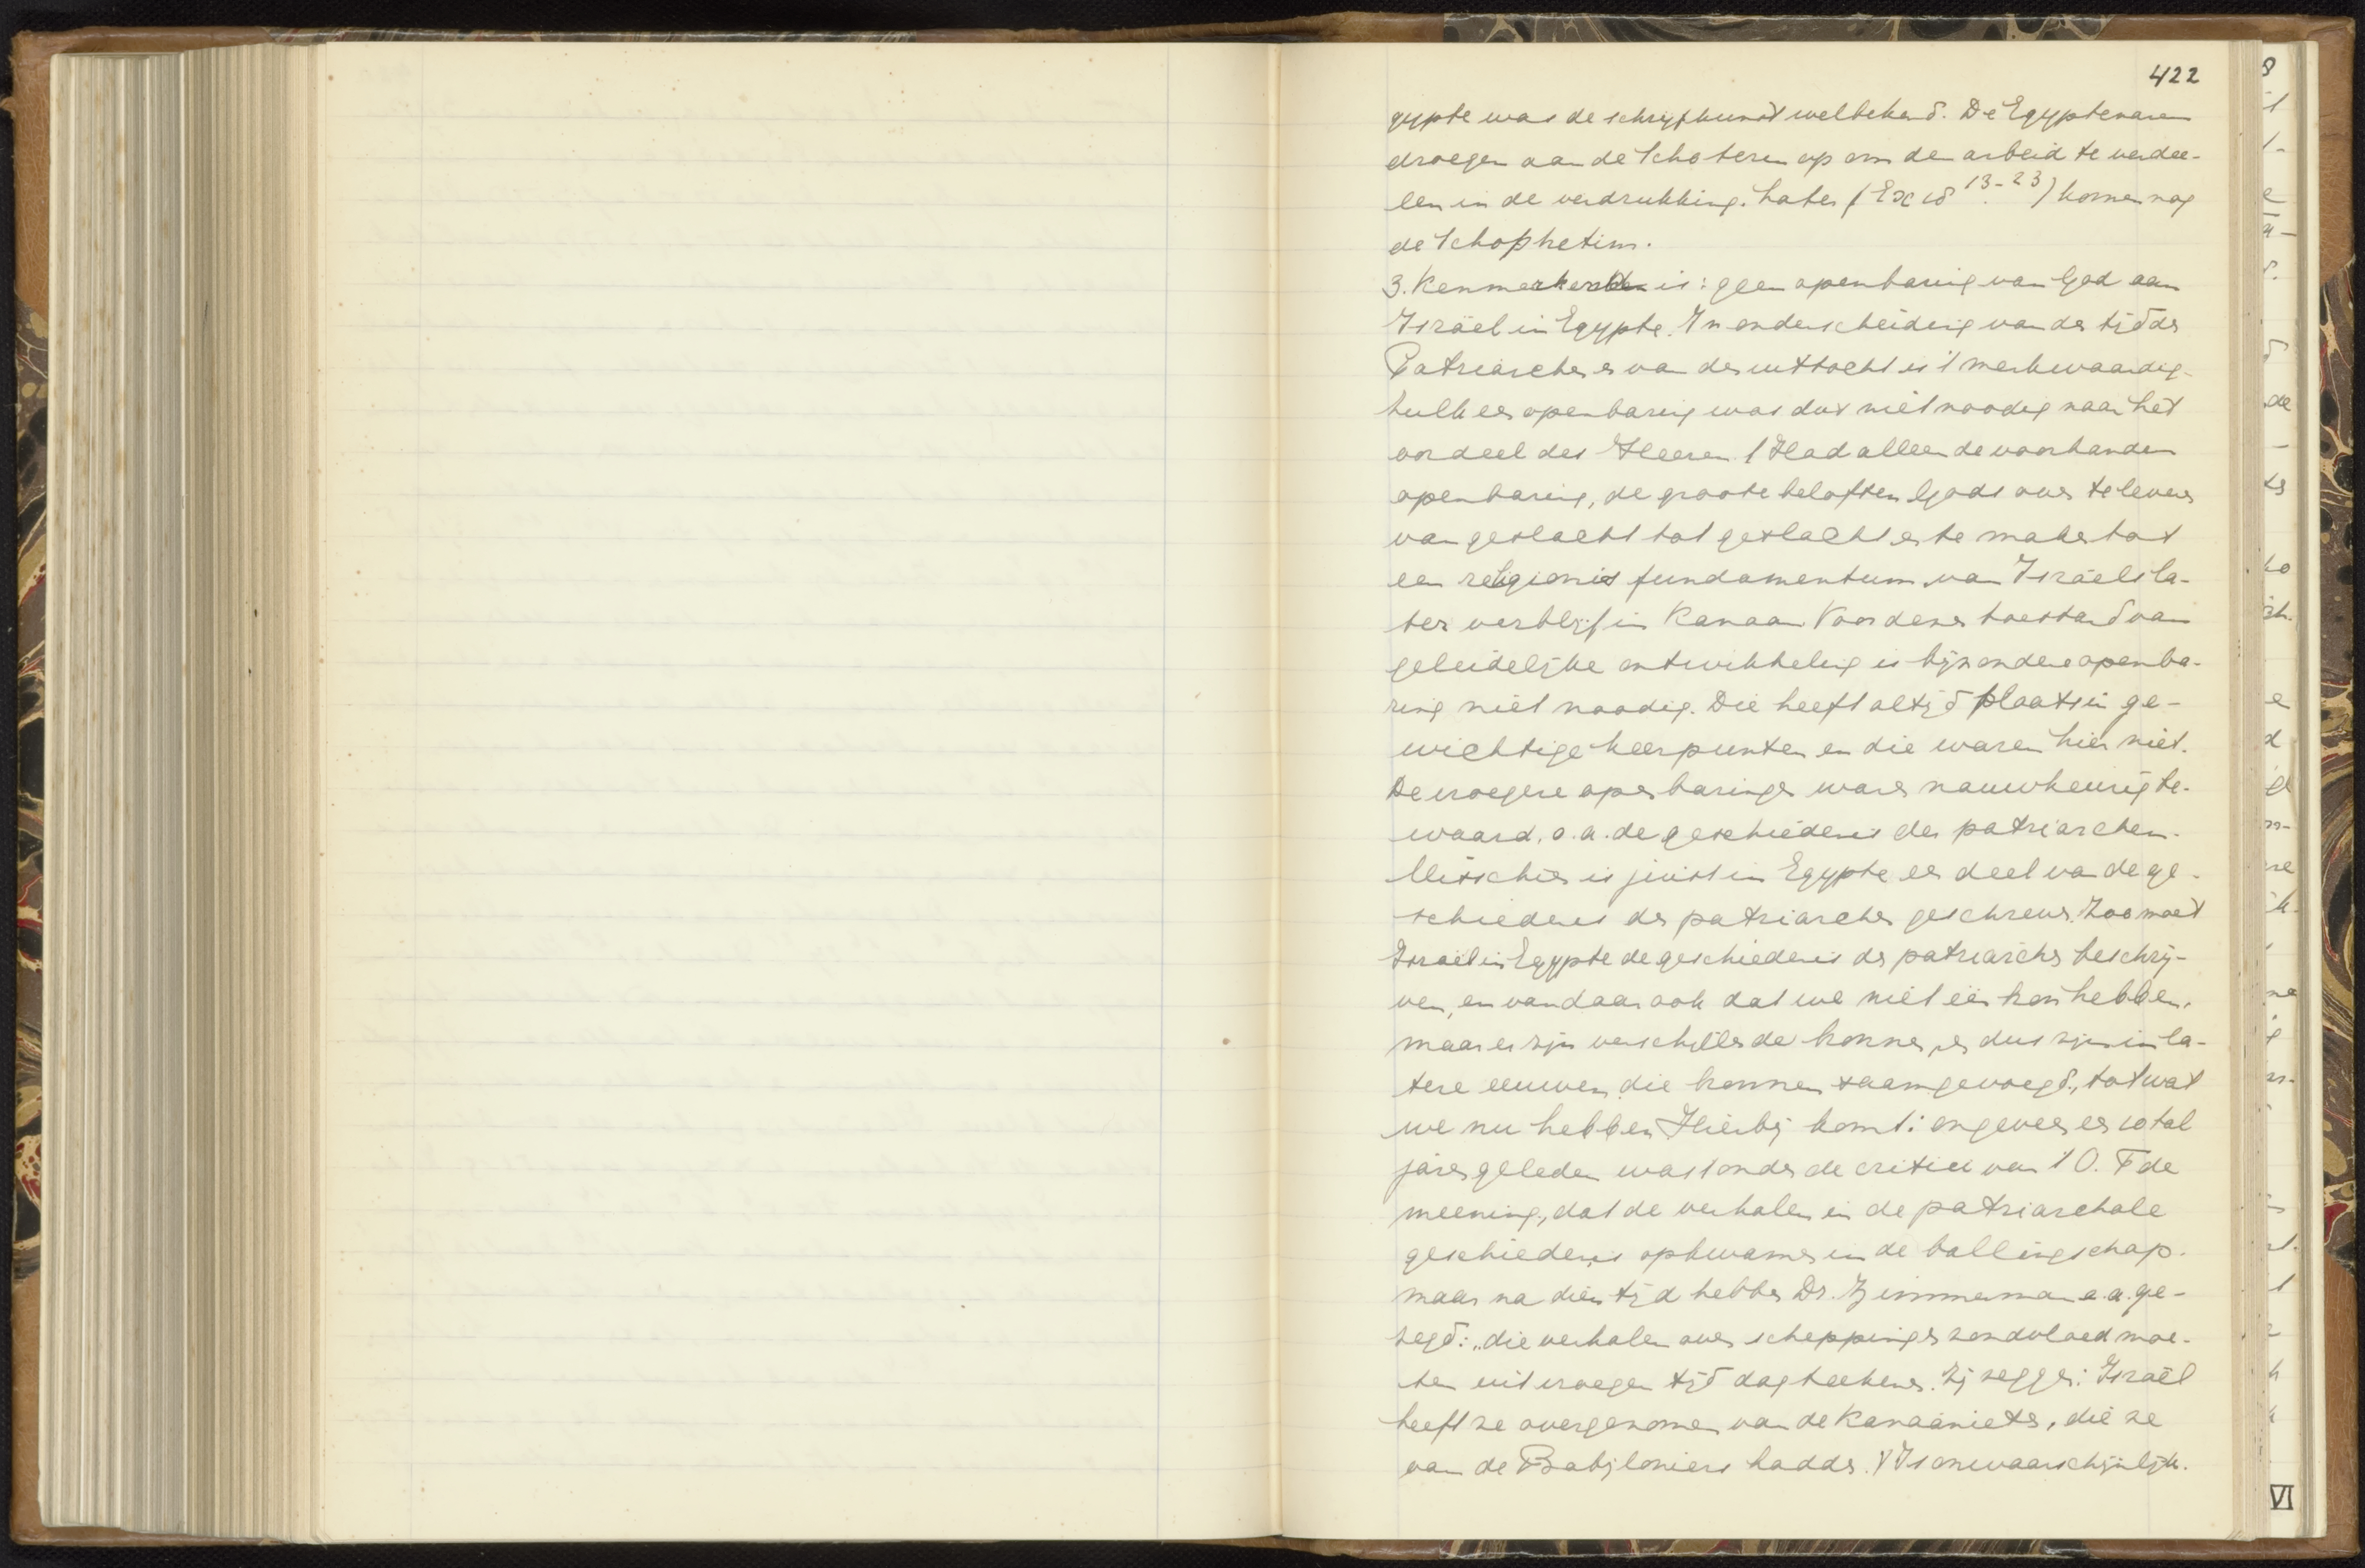 422
gypte was de schrijfkunst welbekend. De Egyptenaren
droegen aan de Schoteren op om den arbeid te verdee-
len in de verdrukking. Later (Ex 18 13-23) komen nog
de Schophetim.
3. Kenmerkenden is: geen openbaring van God aan
Israël in Egypte. In onderscheiding van den tijd der
Patriarchen en van den uittocht is 't merkwaardig.
Zulk een openbaring was dus niet noodig naar het
oordeel des Heeren. 't Had alleen de voorhanden
openbaring, de groote beloften Gods over te leveren
van geslacht tot geslacht en te maken tot
een religionis fundamentum van Israëls la-
ter verblijf in Kanaan. Voor denen toestand van
geleidelijke ontwikkeling is bijzondere openba-
ring niet noodig. Die heeft altijd plaats in ge-
wichtige keerpunten en die waren hier niet.
De vroegere openbaringen waren nauwkeurig be-
waard, o.a. de geschiedenis der patriarchen.
Misschien is juist in Egypte een deel van de ge-
schiedenis der patriarchen geschreven. Zoo moet
Israël in Egypte de geschiedenis der patriarchen beschrij-
ven, en vandaar ook dat we niet één bron hebben,
maar er zijn verschillende bronnen, en dus zijn in la-
tere eeuwen die bronnen saamgevoegd, tot wat
we nu hebben. Hierbij komt: ongeveer een 10tal
jaren geleden was 't onder de critici van 't O. T de
meening, dat de verhalen in de patriarchale
geschiedenis opkwamen in de ballingschap.
maar na dien tijd hebben Dr. Zimmerman e.a. ge-
zegd: "die verhalen over schepping en zondvloed moe-
ten uit vroegen tijd dagteekenen. Zij zeggen: Israël
heeft ze overgenomen van de Kanaänieten, die ze
van de Babyloniers hadden. 't Is onwaarschijnlijk.
VI